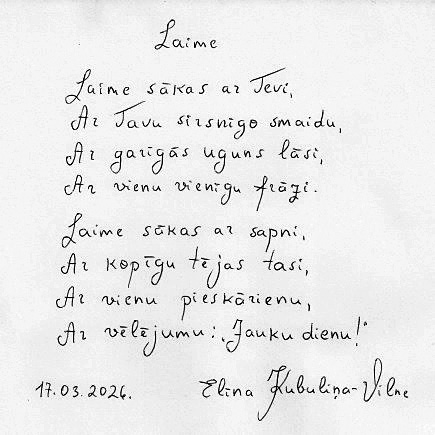 Laime
Laime sākas ar Tevi,
Ar Tavu sirsnīgo smaidu,
Ar garīgās uguns lāsi,
Ar vienu vienīgu frāzi.
Laime sākas ar sapni,
Ar kopīgu tējas tasi,
Ar vienu pieskārienu,
Ar vēlējumu: „Jauku dienu!"
17.03.2026. Elīna Kubuliņa-Vilne